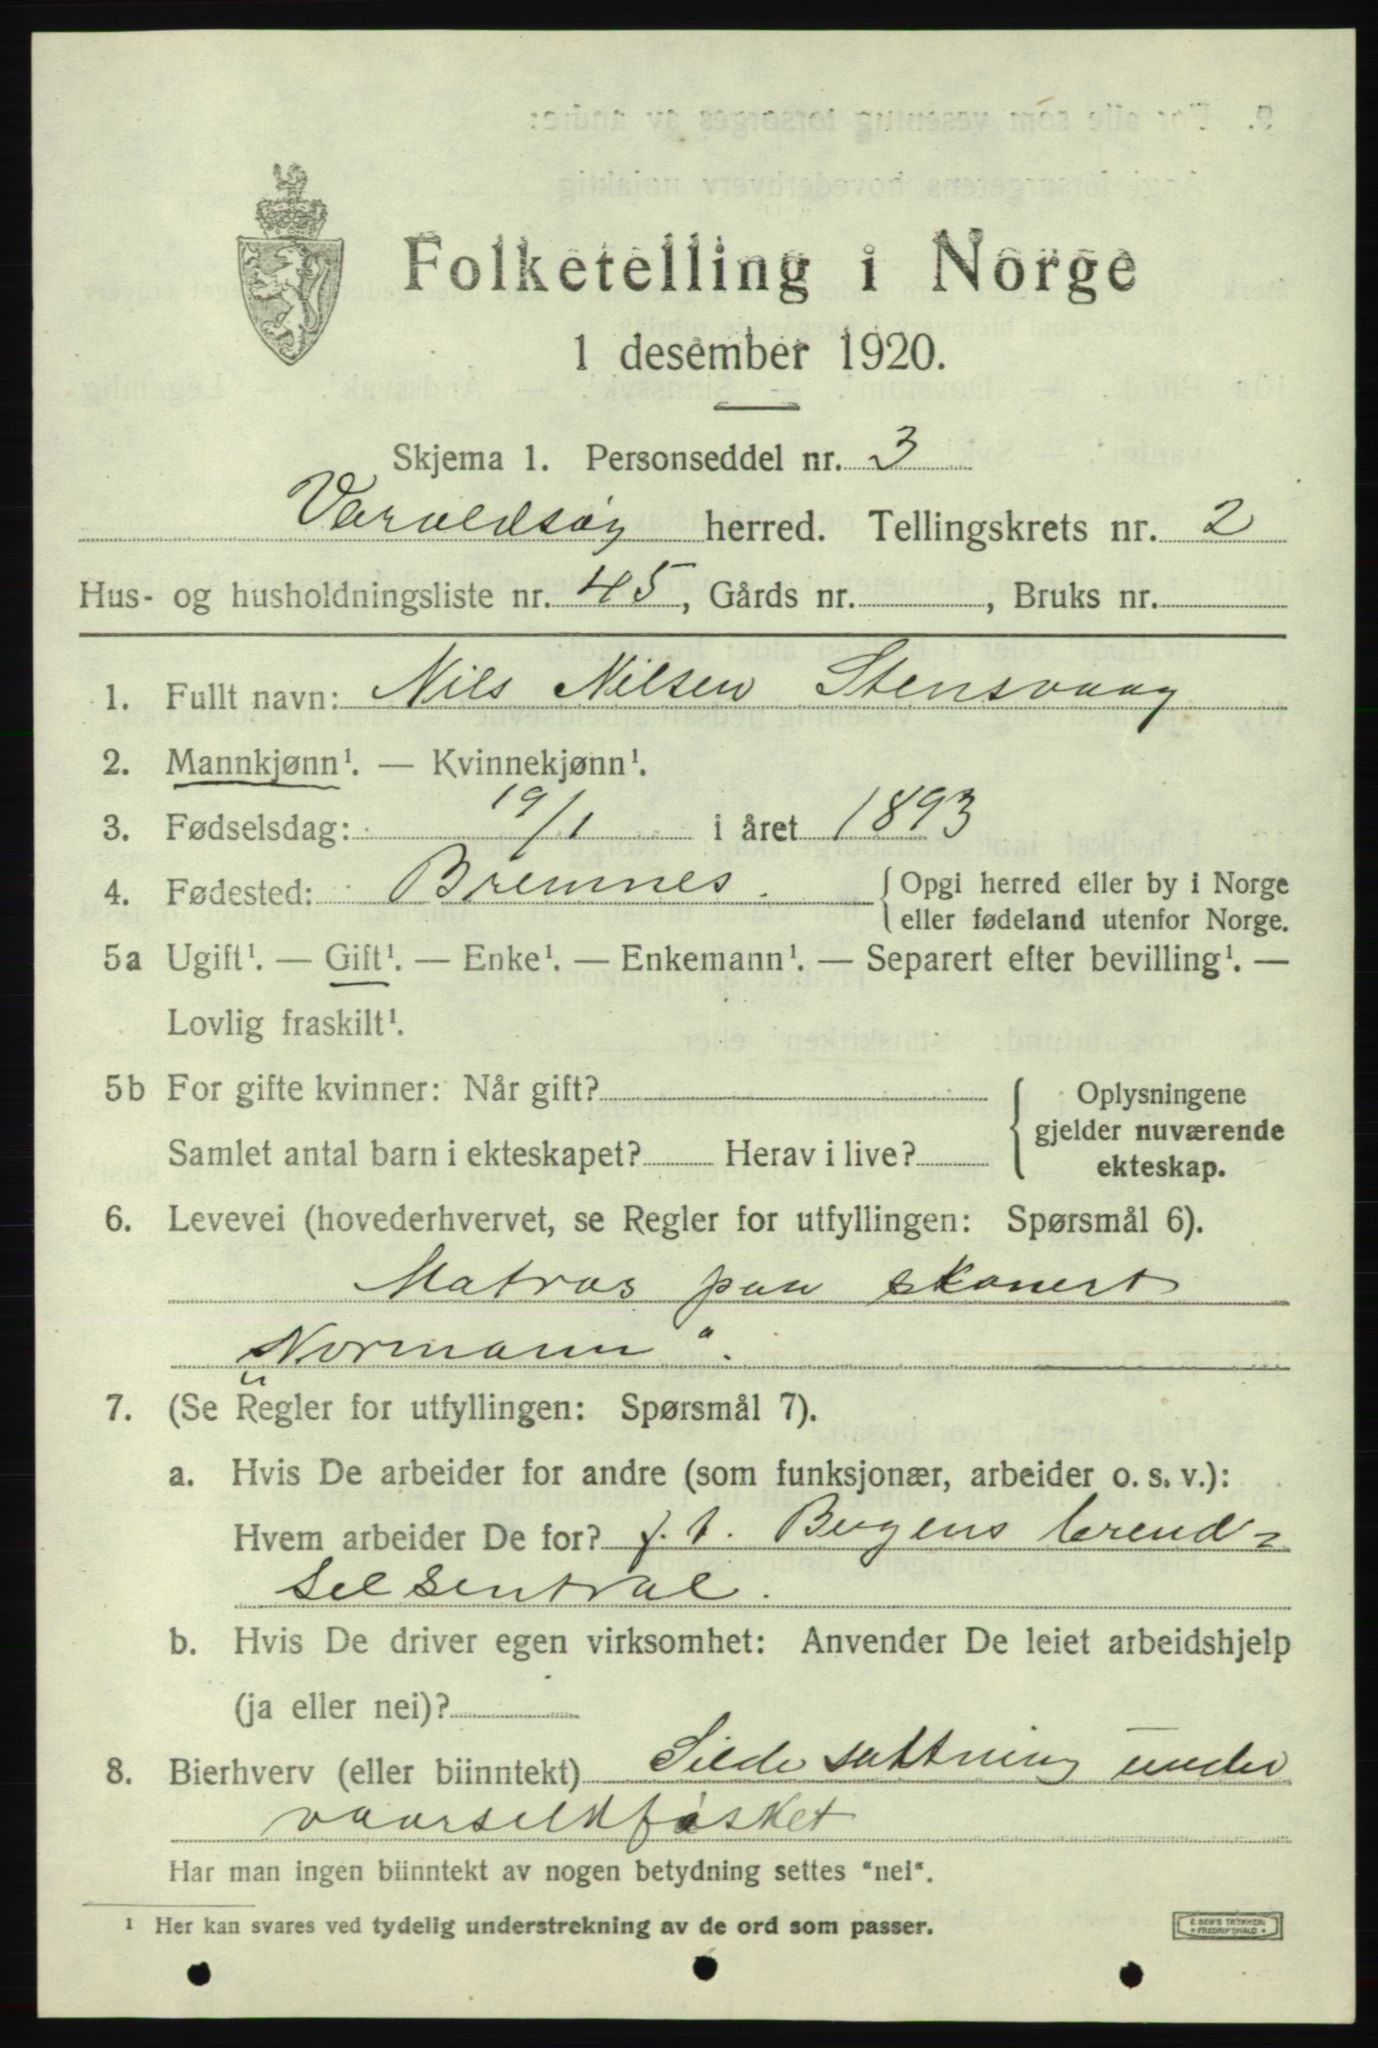 Folketelling i Norge
1 desember 1920.
Skjema 1. Personseddel nr. 3
Varaldsøy herred. Tellingskrets nr. 2
Hus- og husholdningsliste nr. 45, Gårds nr. , Bruks nr.
1. Fullt navn: Nils Nilsen Stensvaag
2. Mannkjønn¹. — Kvinnekjønn¹.
3. Fødselsdag: 19/1 i året 1893
4. Fødested: Bremnes. { Opgi herred eller by i Norge
eller fødeland utenfor Norge.
5a Ugift¹. — Gift¹. — Enke¹. — Enkemann¹. — Separert efter bevilling¹. —
Lovlig fraskilt¹.
5b For gifte kvinner: Når gift? { Oplysningene
gjelder nuværende
Samlet antal barn i ekteskapet? Herav i live? ekteskap.
6. Levevei (hovederhvervet, se Regler for utfyllingen: Spørsmål 6).
Matros paa skonert
„Normann“.
7. (Se Regler for utfyllingen: Spørsmål 7).
a. Hvis De arbeider for andre (som funksjonær, arbeider o. s. v.):
Hvem arbeider De for? f. t. Bergens brend=
selsentral.
b. Hvis De driver egen virksomhet: Anvender De leiet arbeidshjelp
(ja eller nei)?
8. Bierhverv (eller biinntekt) Silde saltning under
vaarsildfisket
Har man ingen biinntekt av nogen betydning settes "nei".
¹ Her kan svares ved tydelig understrekning av de ord som passer.